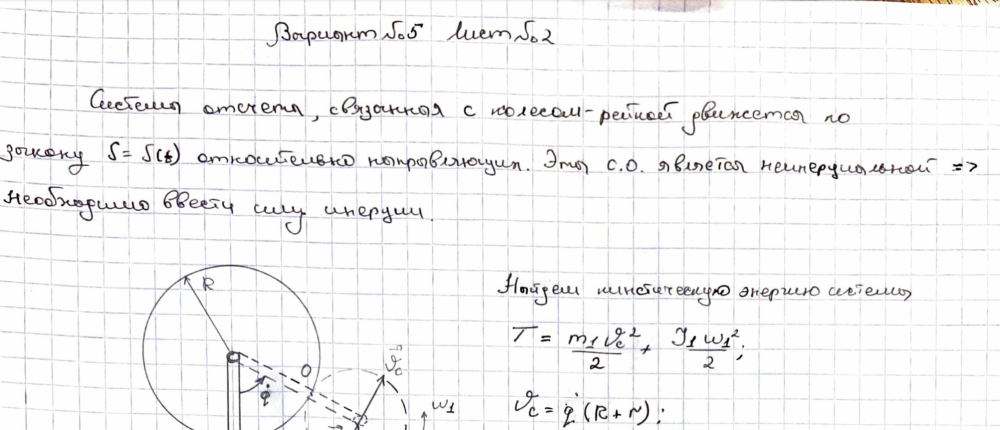 Вариант №5 Лист №2
Система отсчета, связанная с колесом-рейкой движется по
закону S = S(t) относительно направляющих. Эта с.о. является неинерциальной =>
необходимо ввести силу инерции.
R
Найдем кинетическую энергию системы
T = m₁𝜗c²/2 + J₁ω₁²/2;
𝜗c
O
q̇
ω₁
𝜗c = q̇ (R+r);